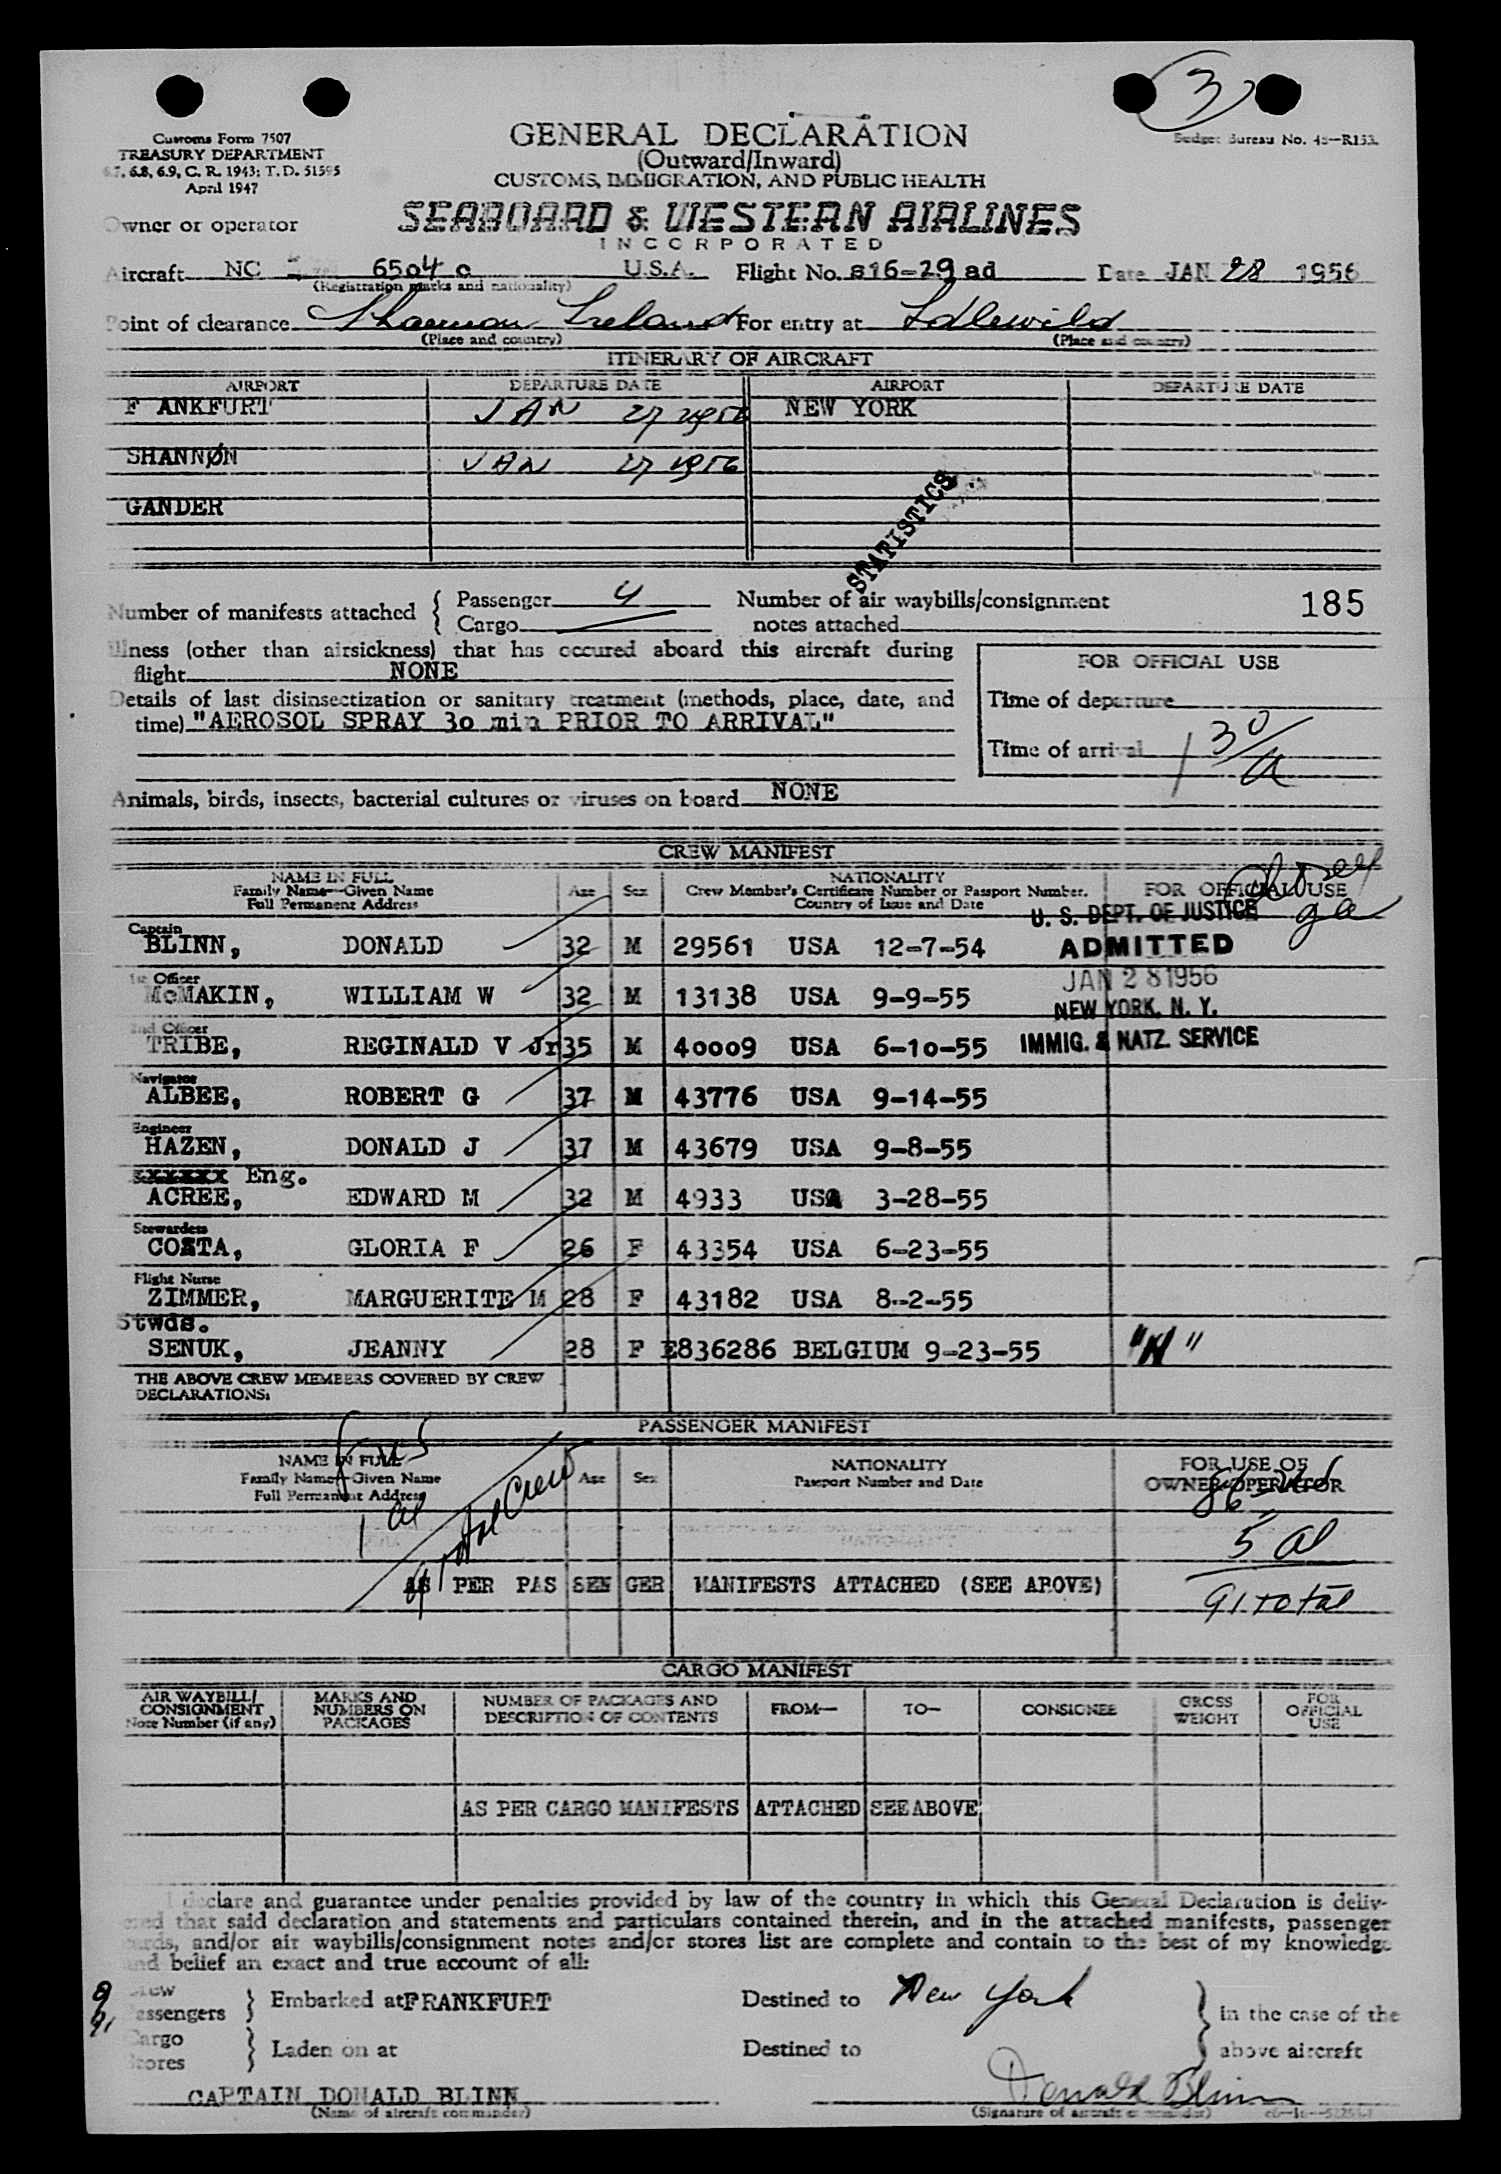 3
Customs Form 7507
TREASURY DEPARTMENT
6.7, 6.8, 6.9, C. R. 1943; T. D. 51595
April 1947
Budget Bureau No. 43—R153.
GENERAL DECLARATION
(Outward/Inward)
CUSTOMS, IMMIGRATION, AND PUBLIC HEALTH
Owner or operator SEABOARD & WESTERN AIRLINES
INCORPORATED
Aircraft NC 6504 c U.S.A. Flight No. s16-29 ad Date JAN 28 1956
(Registration marks and nationality)
Point of clearance Shannon Ireland For entry at Idlewild
(Place and country) (Place and country)
ITINERARY OF AIRCRAFT
AIRPORT DEPARTURE DATE AIRPORT DEPARTURE DATE
F ANKFURT JAN 27 1956 NEW YORK
SHANNON JAN 27 1956
GANDER
STATISTICS
Number of manifests attached { Passenger 4 Number of air waybills/consignment 185
Cargo notes attached
Illness (other than airsickness) that has occured aboard this aircraft during
flight NONE
FOR OFFICIAL USE
Details of last disinsectization or sanitary treatment (methods, place, date, and
time) "AEROSOL SPRAY 3o min PRIOR TO ARRIVAL"
Time of departure
Time of arrival 1 30/a
Animals, birds, insects, bacterial cultures or viruses on board NONE
CREW MANIFEST
NAME IN FULL NATIONALITY
Family Name—Given Name Age Sex Crew Member's Certificate Number or Passport Number. FOR OFFICIAL USE
Full Permanent Address Country of Issue and Date
U. S. DEPT. OF JUSTICE
ADMITTED
JAN 28 1956
NEW YORK, N. Y.
IMMIG. & NATZ. SERVICE
Captain
BLINN, DONALD 32 M 29561 USA 12-7-54
1st Officer
McMAKIN, WILLIAM W 32 M 13138 USA 9-9-55
2nd Officer
TRIBE, REGINALD V Jr 35 M 40009 USA 6-10-55
Navigator
ALBEE, ROBERT G 37 M 43776 USA 9-14-55
Engineer
HAZEN, DONALD J 37 M 43679 USA 9-8-55
Eng.
ACREE, EDWARD M 32 M 4933 USA 3-28-55
Stewardess
COSTA, GLORIA F 26 F 43354 USA 6-23-55
Flight Nurse
ZIMMER, MARGUERITE M 28 F 43182 USA 8-2-55
Stwds.
SENUK, JEANNY 28 F E836286 BELGIUM 9-23-55 "N"
THE ABOVE CREW MEMBERS COVERED BY CREW
DECLARATIONS:
PASSENGER MANIFEST
NAME IN FULL NATIONALITY FOR USE OF
Family Name—Given Name Age Sex Passport Number and Date OWNER-OPERATOR
Full Permanent Address
1 al
total Crew
86
5 al
AS PER PAS SEN GER MANIFESTS ATTACHED (SEE ABOVE)
91 total
CARGO MANIFEST
AIR WAYBILL/ CONSIGNMENT Note Number (if any) MARKS AND NUMBERS ON PACKAGES NUMBER OF PACKAGES AND DESCRIPTION OF CONTENTS FROM— TO— CONSIGNEE GROSS WEIGHT FOR OFFICIAL USE
AS PER CARGO MANIFESTS ATTACHED SEE ABOVE
I declare and guarantee under penalties provided by law of the country in which this General Declaration is deliv-
ered that said declaration and statements and particulars contained therein, and in the attached manifests, passenger
cards, and/or air waybills/consignment notes and/or stores list are complete and contain to the best of my knowledge
and belief an exact and true account of all:
9 Crew
91 Passengers } Embarked at FRANKFURT Destined to New York } in the case of the
Cargo
Stores } Laden on at Destined to above aircraft
CAPTAIN DONALD BLINN Donald Blinn
(Name of aircraft commander) (Signature of aircraft commander)